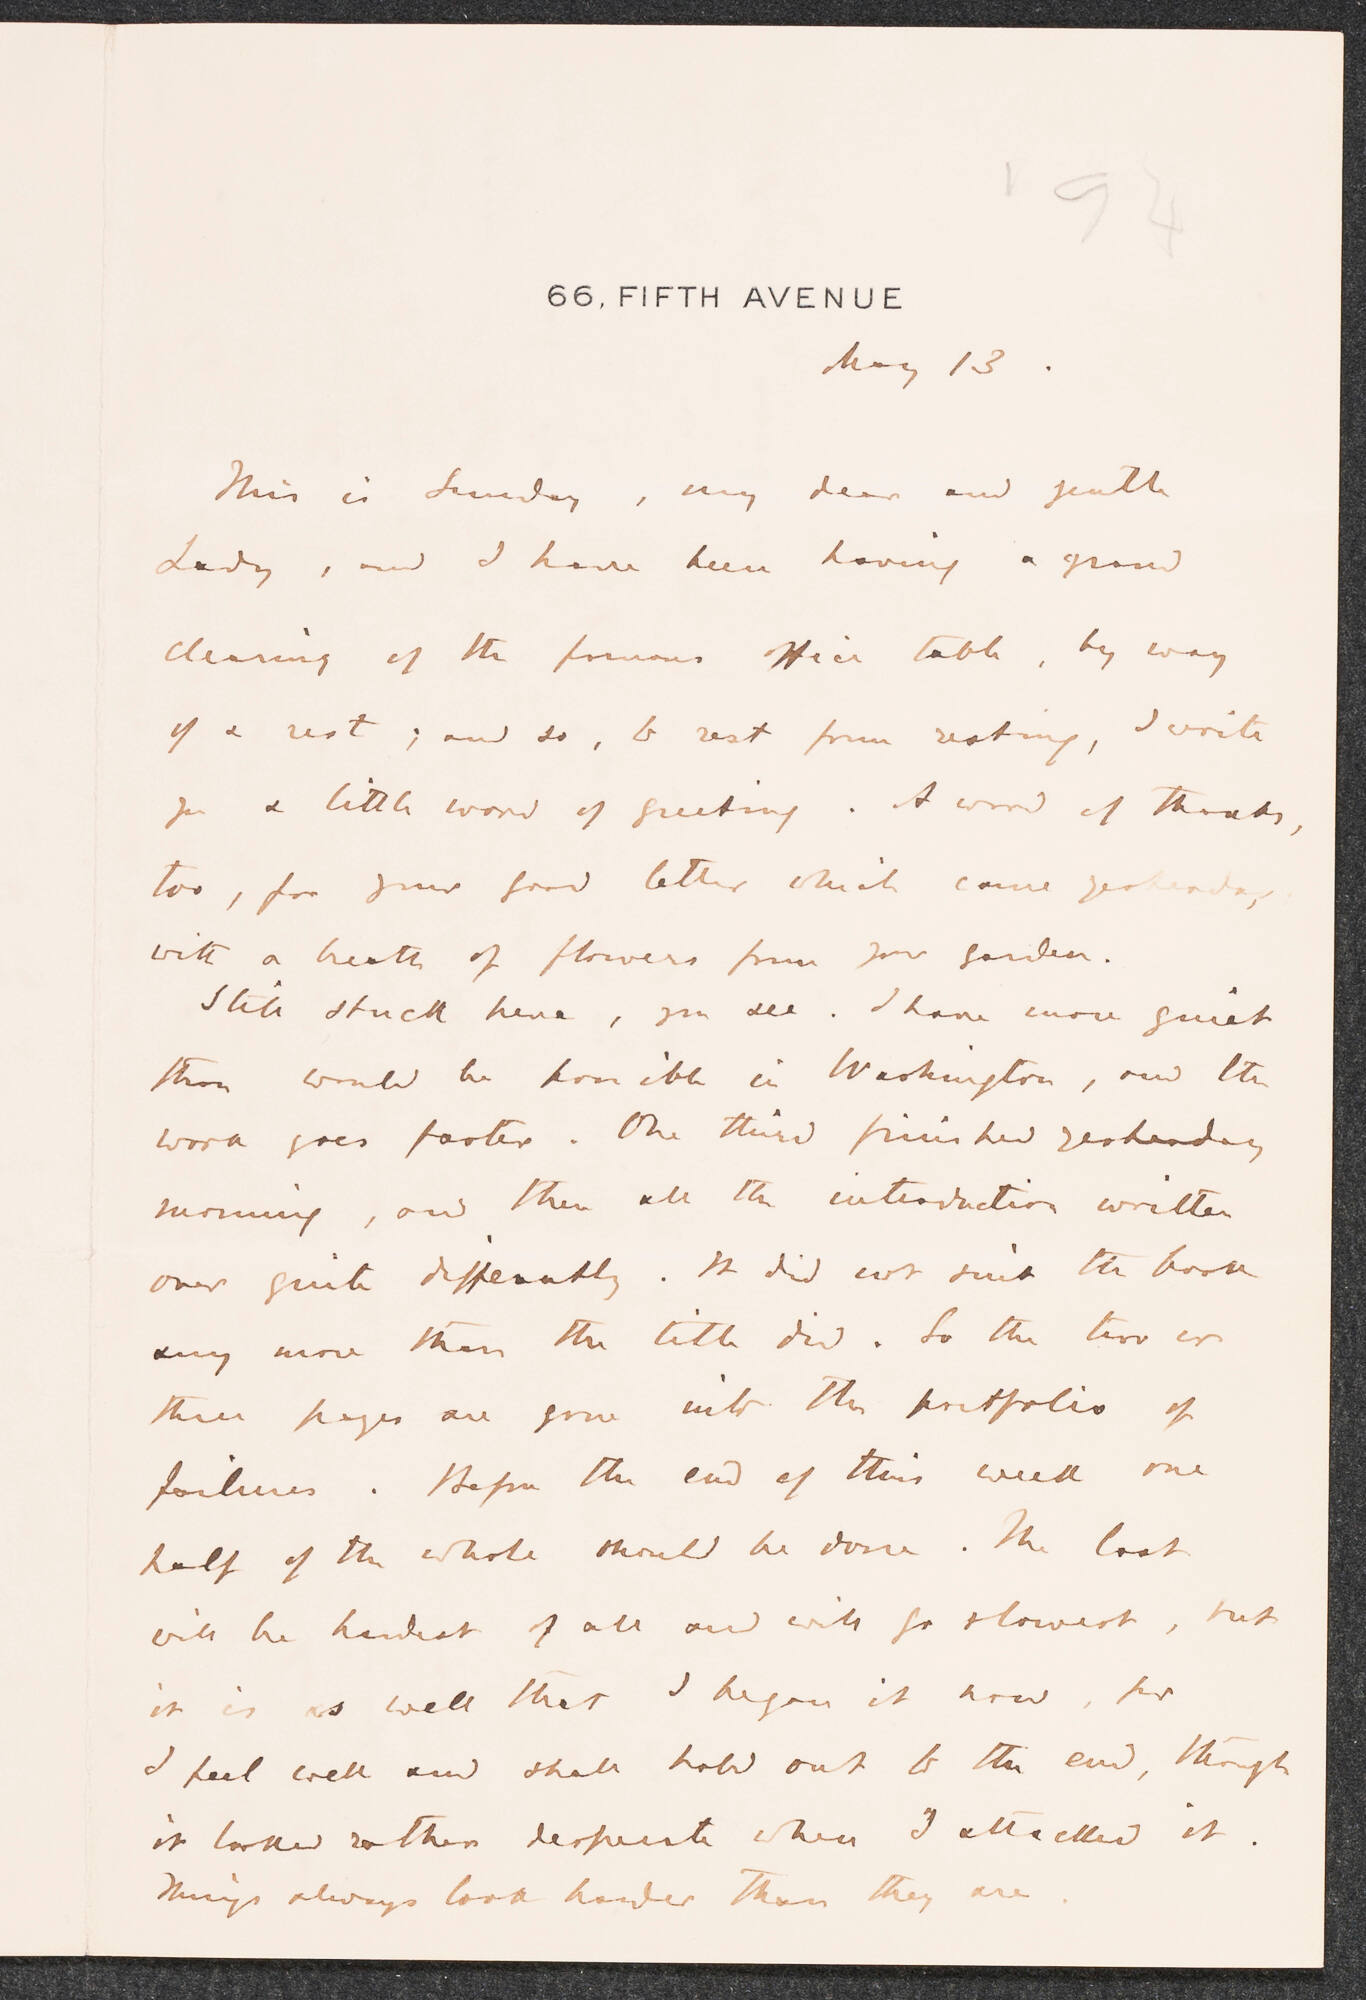 '94
66, FIFTH AVENUE
May 13.
This is Sunday, my dear and gentle
Lady, and I have been having a grand
clearing of the famous office table, by way
of a rest; and so, to rest from resting, I write
you a little word of greeting. A word of thanks,
too, for your good letter which came yesterday
with a breath of flowers from your garden.
Still stuck here, you see. I have more quiet
than would be possible in Washington, and the
work goes faster. One third finished yesterday
morning, and then all the introduction written
over quite differently. It did not suit the book
any more than the title did. So the two or
three pages are gone into the portfolio of
failures. Before the end of this week one
half of the whole should be done. The last
will be hardest of all and will go slowest, but
it is as well that I began it now, for
I feel well and shall hold out to the end, though
it looked rather desperate when I attacked it.
Things always look harder than they are.